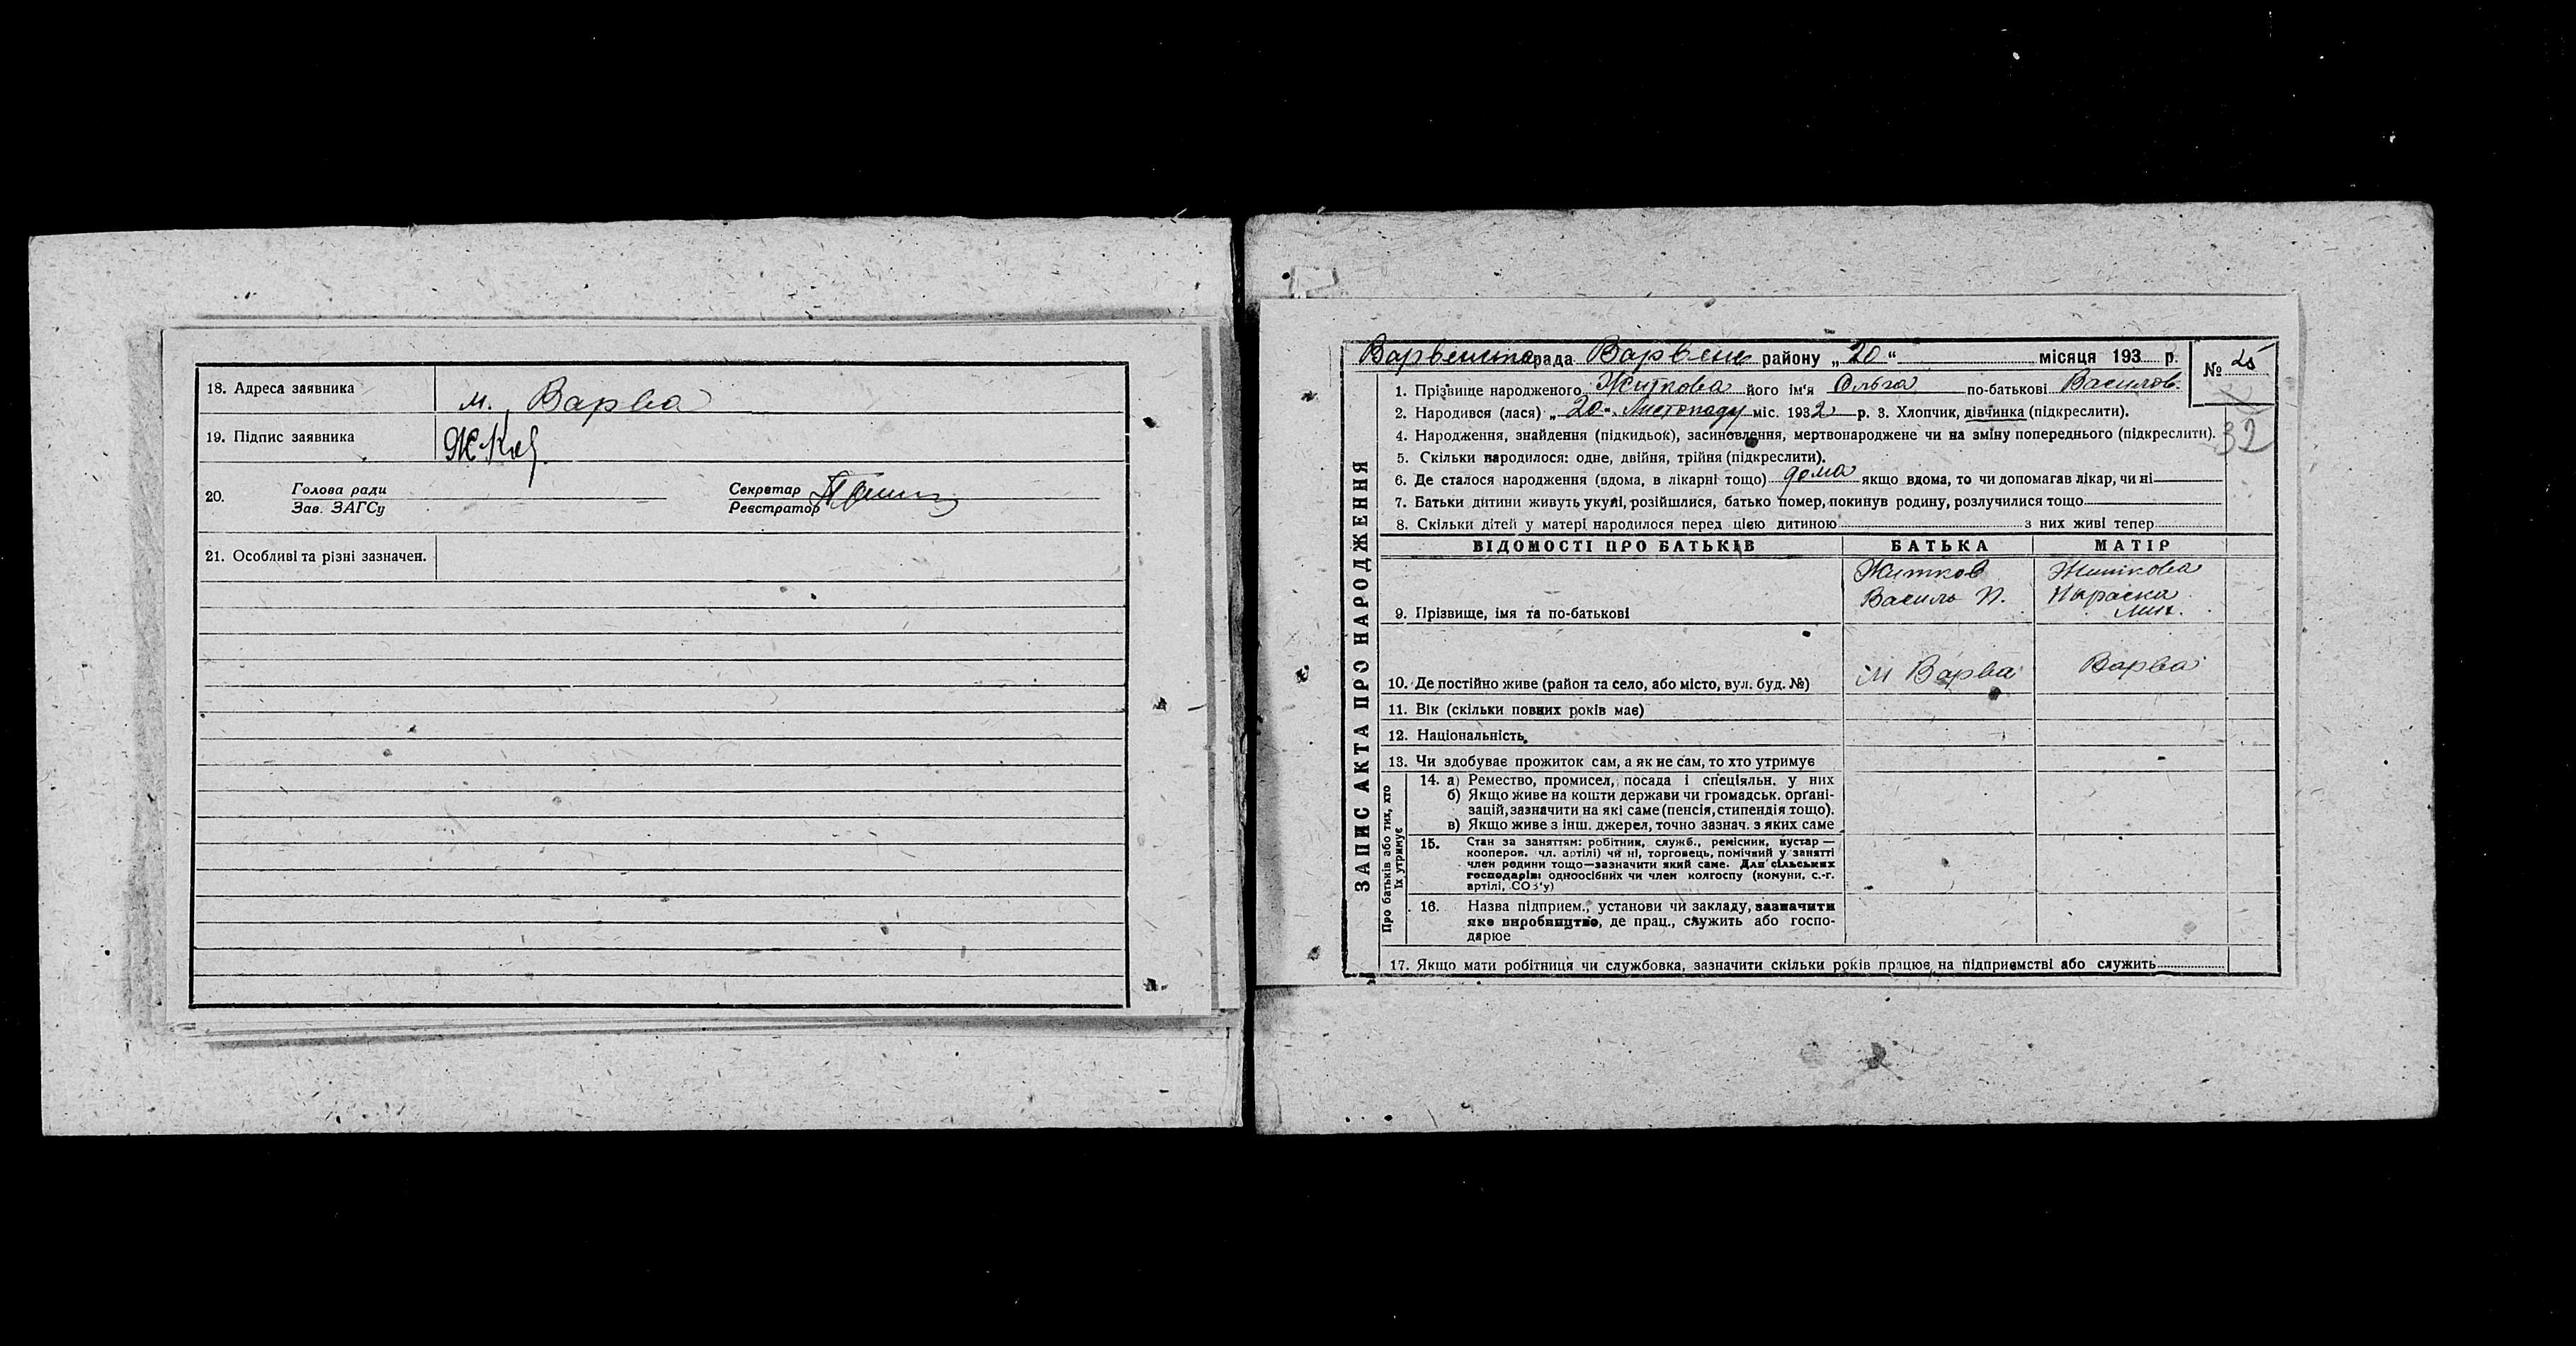 18. Адреса заявника м. Варва
19. Підпис заявника
20. Голова ради Секретар
Зав. ЗАГСу Реєстратор
21. Особливі та різні зазначен.
ЗАПИС АКТА ПРО НАРОДЖЕННЯ
рада Варвен району „20“ місяця 193 р. № 25
1. Прізвище народженого Житкова його ім'я Ольга по-батькові Василов.
2. Народився (лася) „20“ Листопаду міс. 1932 р. 3. Хлопчик, дівчинка (підкреслити).
32
4. Народження, знайдення (підкидьок), засиновлення, мертвонароджене чи на зміну попереднього (підкреслити).
5. Скільки народилося: одне, двійня, трійня (підкреслити).
6. Де сталося народження (вдома, в лікарні тощо) дома якщо вдома, то чи допомагав лікар, чи ні
7. Батьки дитини живуть укупі, розійшлися, батько помер, покинув родину, розлучилися тощо
8. Скільки дітей у матері народилося перед цією дитиною з них живі тепер
ВІДОМОСТІ ПРО БАТЬКІВ БАТЬКА МАТІР
Житков Житкова
Василь П. Параска
9. Прізвище, імя та по-батькові Мих.
10. Де постійно живе (район та село, або місто, вул. буд. №) м Варва Варва
11. Вік (скільки повних років має)
12. Національність
13. Чи здобуває прожиток сам, а як не сам, то хто утримує
Про батьків або тих, хто
їх утримує
14. а) Ремество, промисел, посада і спеціяльн. у них
б) Якщо живе на кошти держави чи громадськ. органі-
зацій, зазначити на які саме (пенсія, стипендія тощо).
в) Якщо живе з інш. джерел, точно зазнач. з яких саме
15. Стан за заняттям: робітник, служб., ремісник, кустар —
кооперов. чл. артілі) чи ні, торговець, помічний у занятті
член родини тощо—зазначити який саме. Для сільських
господарів: одноосібних чи член колгоспу (комуни, с.-г.
артілі, СОЗ'у)
16. Назва підприєм., установи чи закладу, зазначити
яке виробництво, де прац., служить або госпо-
дарює
17. Якщо мати робітниця чи службовка, зазначити скільки років працює на підприємстві або служить